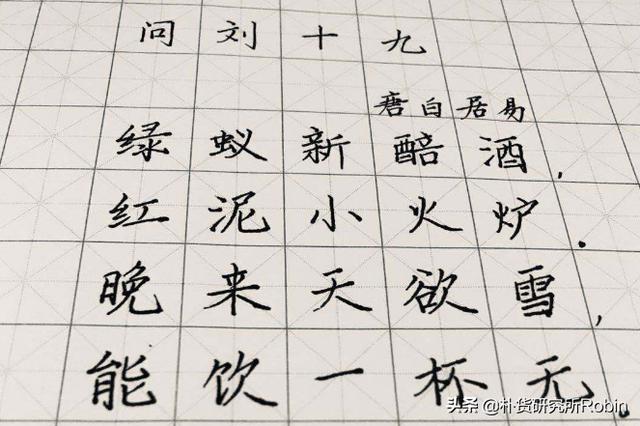 问刘十九
唐白居易
绿蚁新醅酒,
红泥小火炉.
晚来天欲雪,
能饮一杯无.
头条 @朴货研究所Robin